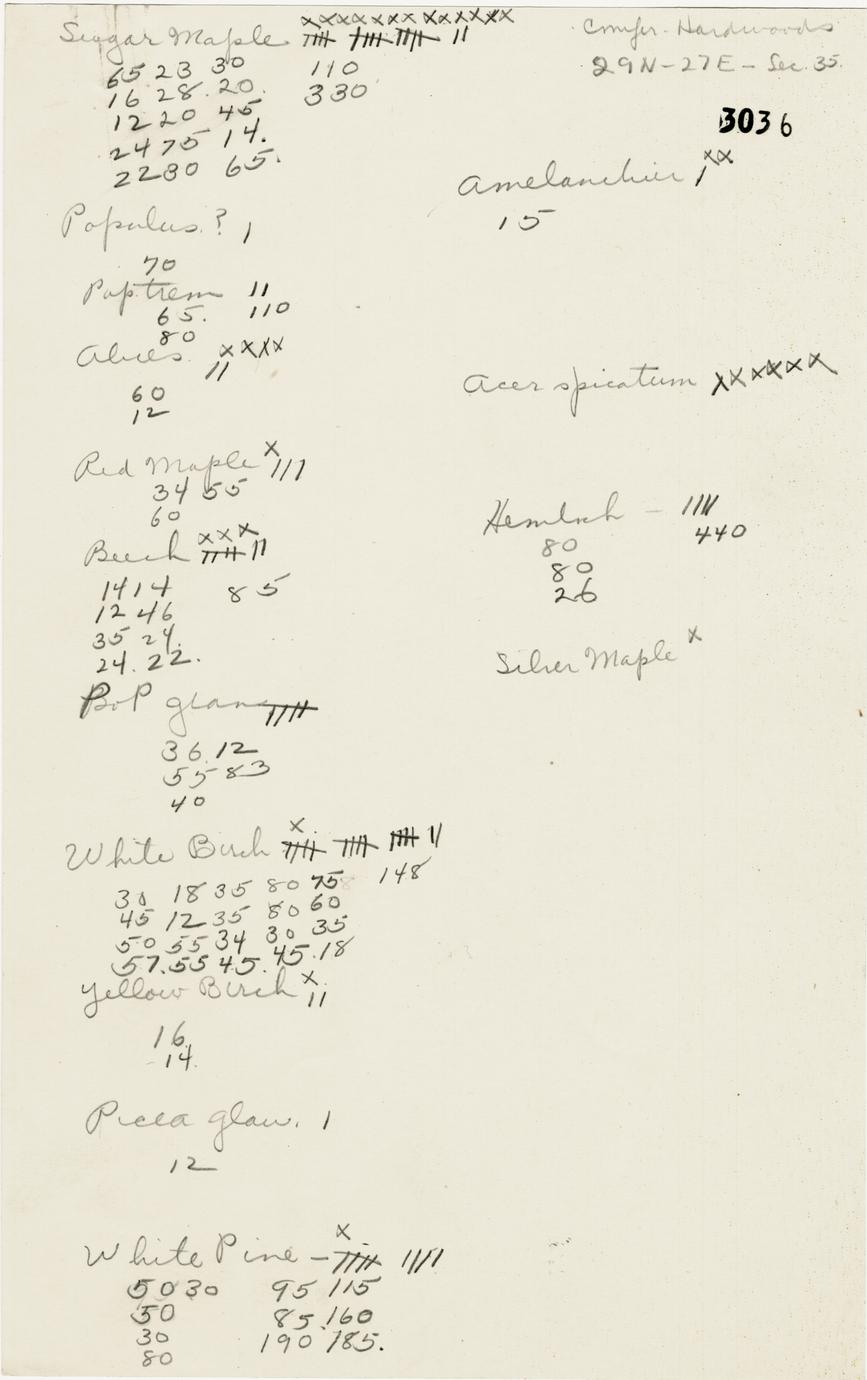 Sugar Maple xxxxxxxxxxxxxx
65 23 30 110
16 28 20 330
12 20 45
24 75 14.
22 80 65.
Populus ? 1
70
Pop. trem 11
65. 110
80
Abies xxxx
11
60
12
Red Maple x 111
34 55
60
Beech xxx
14 14 85
12 46
35 24.
24. 22.
Pop gran
36 12
55 83
40
White Birch x
30 18 35 80 75 148
45 12 35 80 60
50 55 34 30 35
57. 55 45. 45. 18
Yellow Birch x
11
16
14.
Picea glau. 1
12
White Pine – x
50 30 95 115
50 85 160
30 190 185.
80
Conifer-Hardwoods
29N–27E – Sec. 35.
3036
Amelanchier xx
1
15
Acer spicatum xxxxxx
Hemlock – 1111
80 440
80
26
Silver Maple x